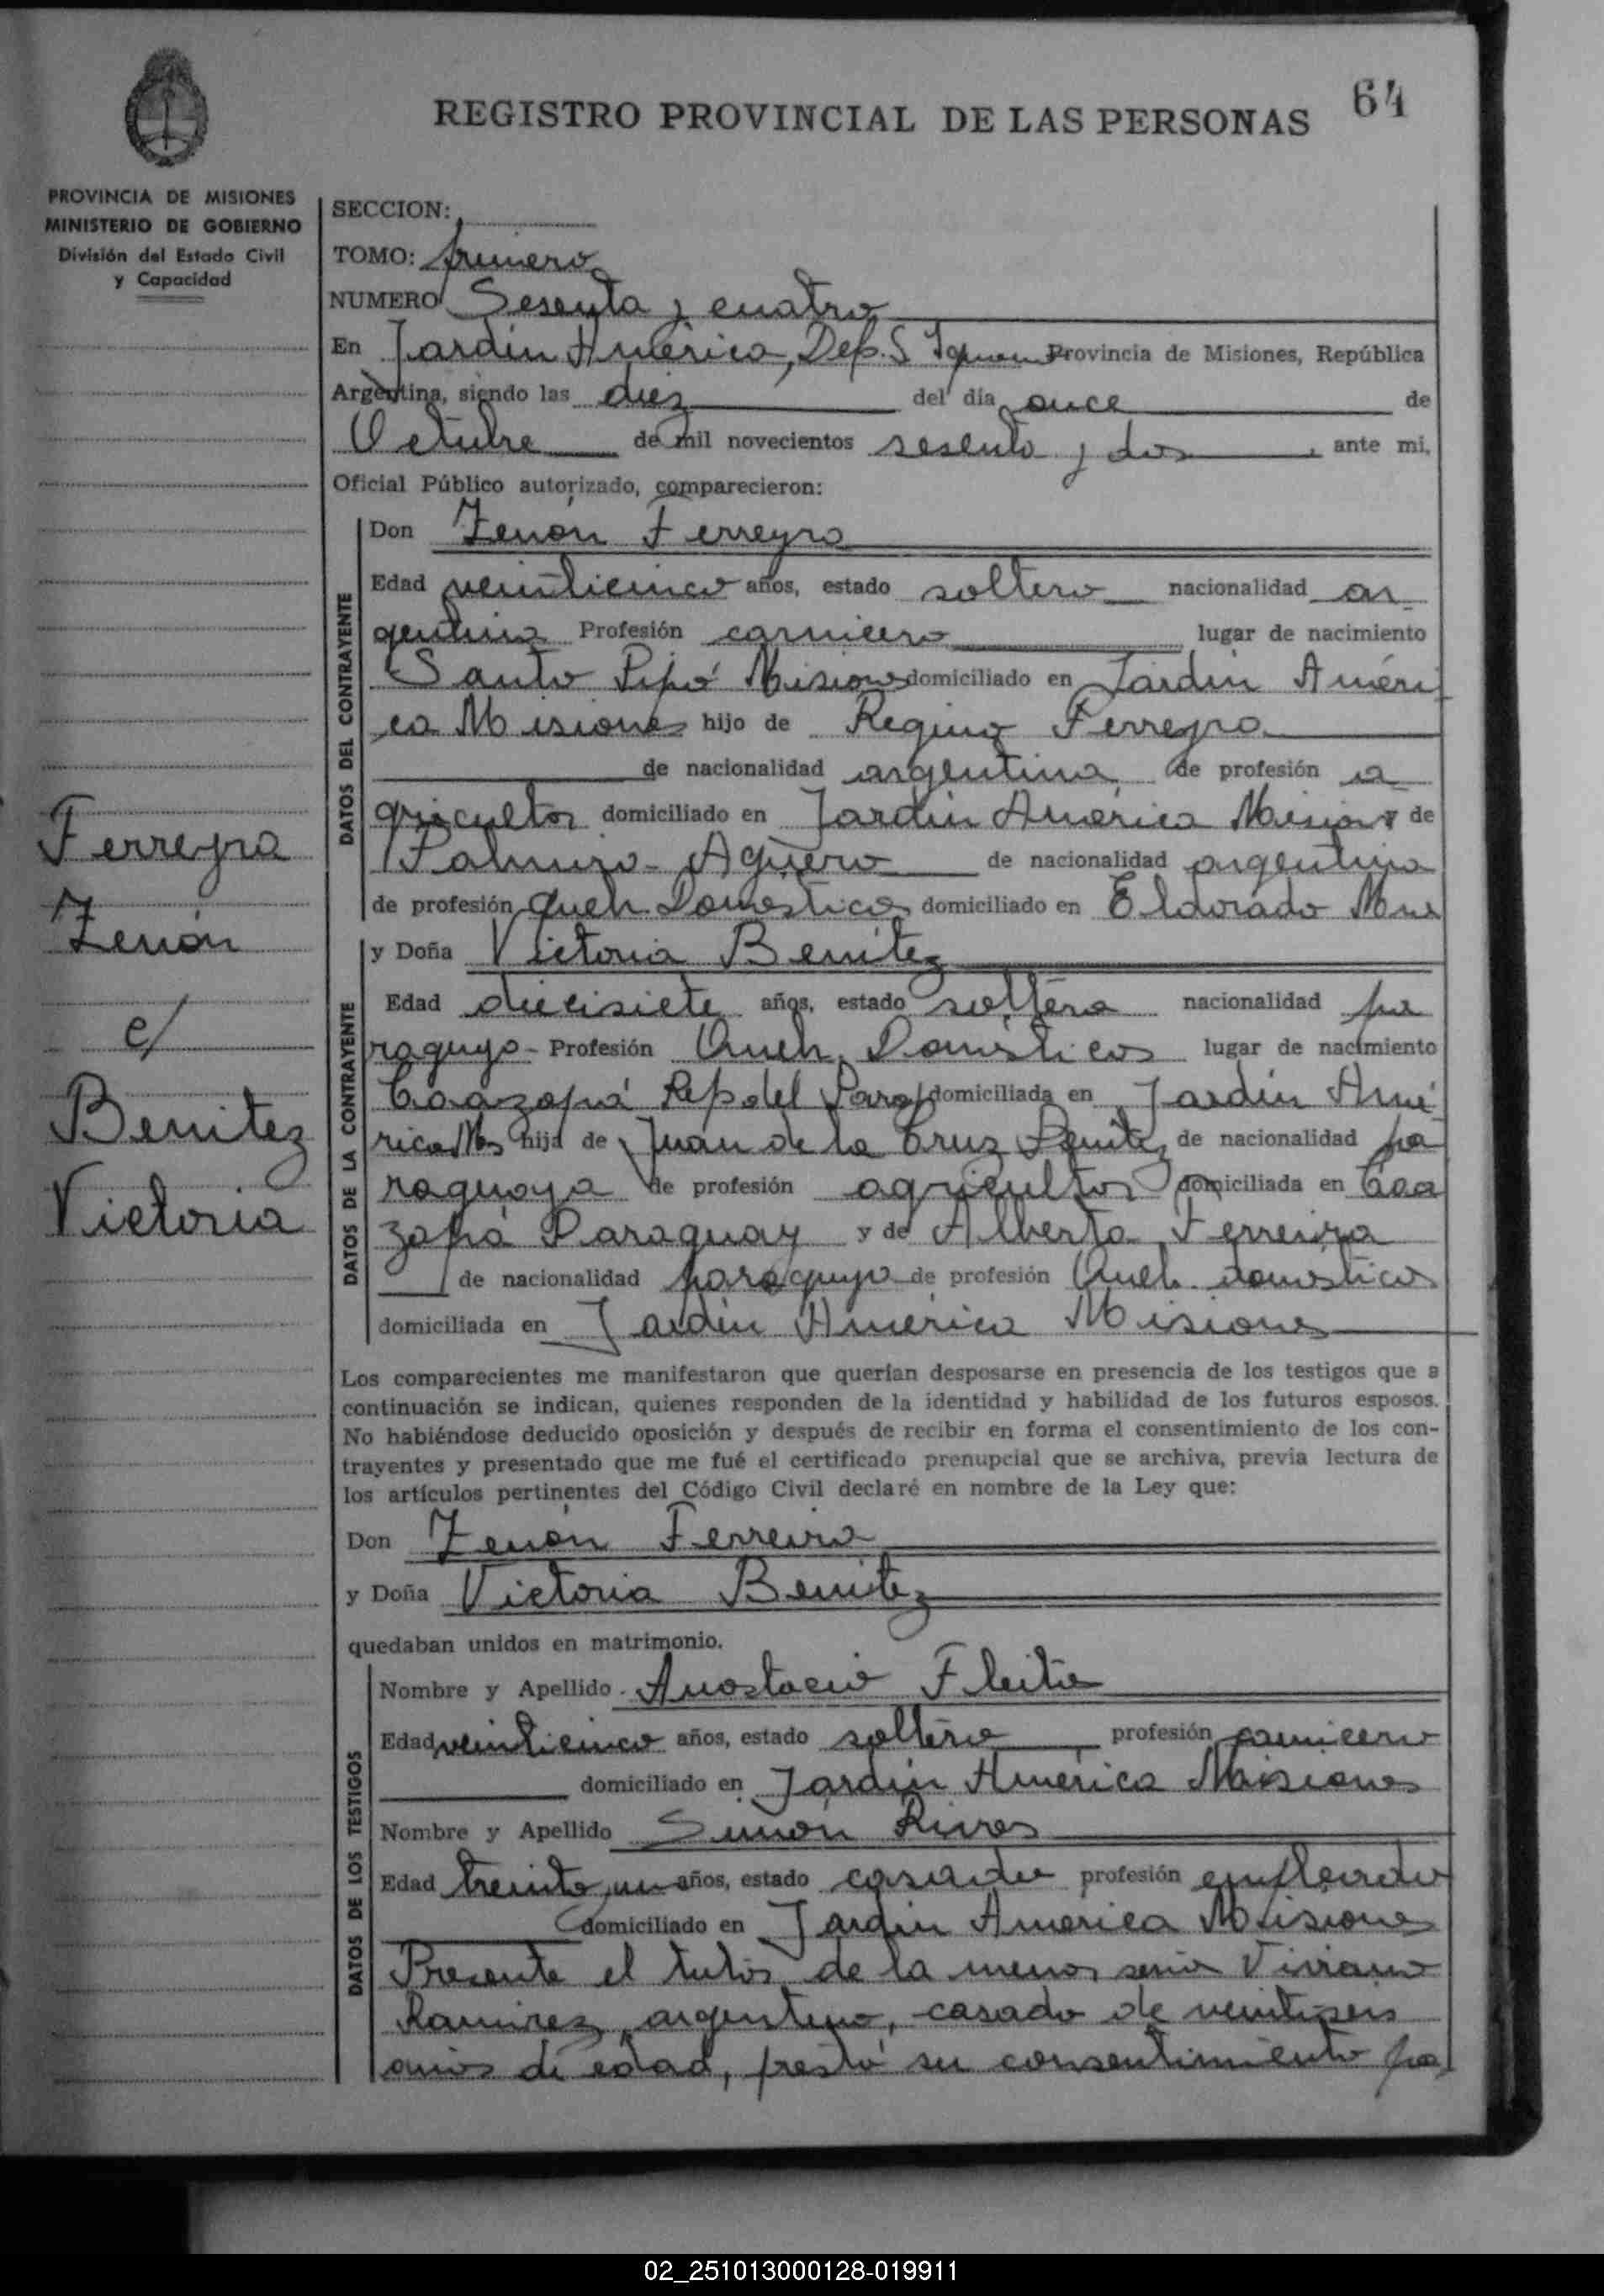 64
REGISTRO PROVINCIAL DE LAS PERSONAS
PROVINCIA DE MISIONES
MINISTERIO DE GOBIERNO
División del Estado Civil
y Capacidad
SECCION:
TOMO: primero
NUMERO Sesenta y cuatro
En Jardín América, Dep. S Provincia de Misiones, República
Argentina, siendo las diez del día once de
Octubre de mil novecientos sesenta y dos, ante mi,
Oficial Público autorizado, comparecieron:
DATOS DEL CONTRAYENTE
Don Zenón Ferreyra
Edad veinticinco años, estado soltero nacionalidad ar
gentina Profesión carnicero lugar de nacimiento
Santo Pipó Misiones domiciliado en Jardín Améri
ca Misiones hijo de Regino Ferreyra
de nacionalidad argentina de profesión a
gricultor domiciliado en Jardín América y de
Agüero de nacionalidad argentina
de profesión Queh. Domésticos domiciliado en Eldorado
Ferreyra
Zenón
c/
Benitez
Victoria
DATOS DE LA CONTRAYENTE
y Doña Victoria Benítez
Edad diecisiete años, estado soltera nacionalidad pa
raguya - Profesión Queh. Domésticos lugar de nacimiento
Caazapá Rep del domiciliada en Jardín Amé
rica Mns hija de Juan de la Cruz Benítez de nacionalidad pa
raguaya de profesión agricultor domiciliada en Caa
zapá Paraguay y de Alberta Ferreira
de nacionalidad paraguya de profesión Queh. domésticos
domiciliada en Jardín América Misiones
Los comparecientes me manifestaron que querían desposarse en presencia de los testigos que a
continuación se indican, quienes responden de la identidad y habilidad de los futuros esposos.
No habiéndose deducido oposición y después de recibir en forma el consentimiento de los con-
trayentes y presentado que me fué el certificado prenupcial que se archiva, previa lectura de
los artículos pertinentes del Código Civil declaré en nombre de la Ley que:
Don Zenón Ferreira
y Doña Victoria Benítez
quedaban unidos en matrimonio.
DATOS DE LOS TESTIGOS
Nombre y Apellido Anastacio Fleita
Edad veinticinco años, estado soltero profesión carnicero
domiciliado en Jardín América Misiones
Nombre y Apellido Simón Rivas
Edad treinta y un años, estado casado profesión empleado
domiciliado en Jardín America Misiones
Presente el tutor de la menor Viviano
Ramirez, argentino, casado de veintiseis
años de edad, prestó su consentimiento pa
02_251013000128-019911